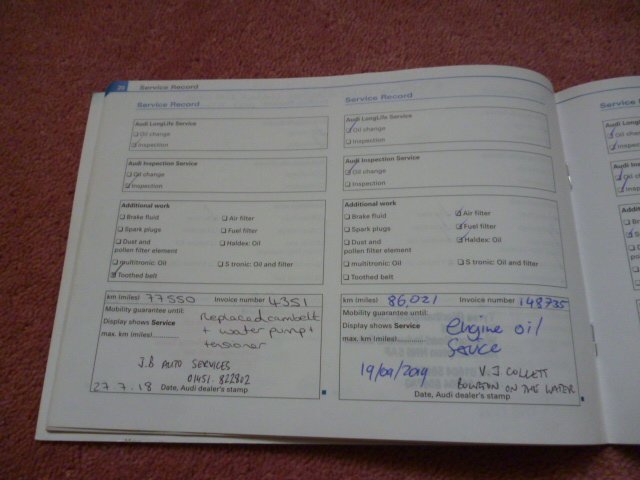 20 Service Record
Service Record
Audi LongLife Service
Oil change
Inspection
Audi Inspection Service
Oil change
Inspection
Additional work
Brake fluid
Air filter
Spark plugs
Fuel filter
Dust and
pollen filter element
Haldex: Oil
multitronic: Oil
S tronic: Oil and filter
Toothed belt
km (miles) 77550 Invoice number 4351
Mobility guarantee until:
Display shows Service
max. km (miles)
Replaced cambelt
+ water pump +
tensioner
J.B AUTO SERVICES
01451. 822802
27.7.18 Date, Audi dealer's stamp
Service Record
Audi LongLife Service
Oil change
Inspection
Audi Inspection Service
Oil change
Inspection
Additional work
Brake fluid
Air filter
Spark plugs
Fuel filter
Dust and
pollen filter element
Haldex: Oil
multitronic: Oil
S tronic: Oil and filter
Toothed belt
km (miles) 86021 Invoice number 148735
Mobility guarantee until:
Display shows Service
max. km (miles)
engine oil
19/09/2019
V. J COLLETT
BOURTON ON THE WATER
Date, Audi dealer's stamp
Service
Audi Long
Oil cha
Inspec
Audi Ins
Oil c
Insp